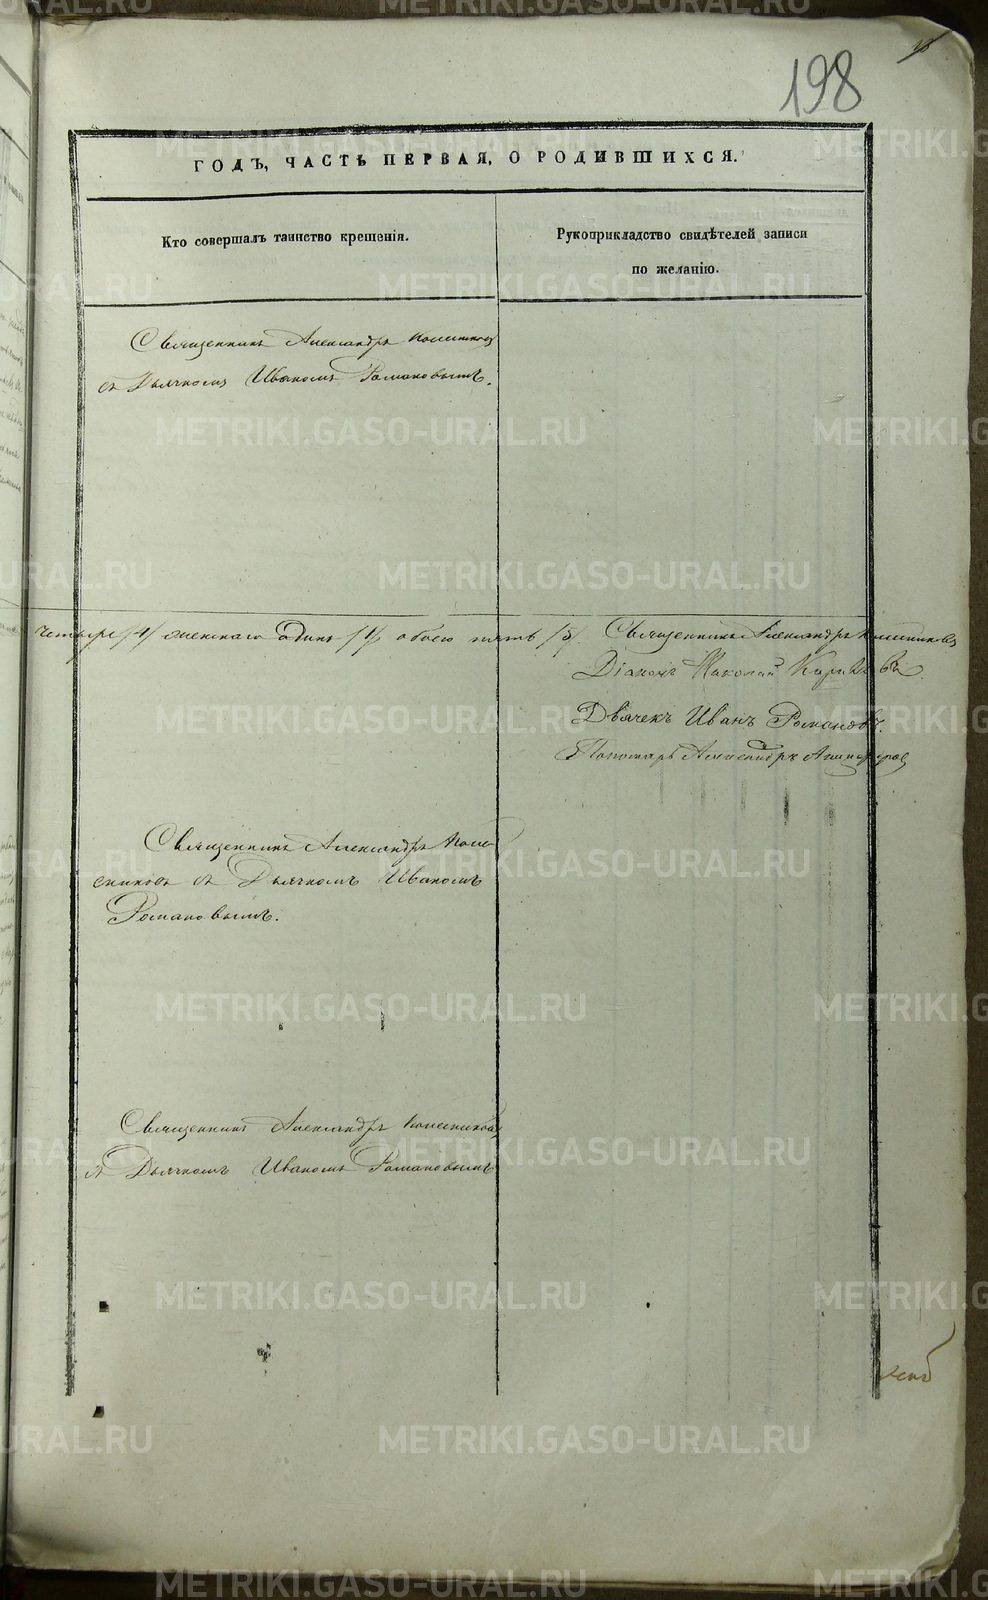 198
ГОДЪ, ЧАСТЬ ПЕРВАЯ, О РОДИВШИХСЯ.
Кто совершалъ таинство крещенія.
Рукоприкладство свидѣтелей записи
по желанію.
Священникъ Александръ Колесниковъ
съ Дьячкомъ Иваномъ Романовымъ.
четыре /4/ женскаго одинъ /1/ обоего пять /5/
Священникъ Александръ Колесниковъ
Діаконъ Николай
Дьячекъ Иванъ Романовъ.
Пономарь Александръ
Священникъ Александръ Коле
сниковъ съ Дьячкомъ Иваномъ
Романовымъ.
Священникъ Александръ Колесниковъ
съ Дьячкомъ Иваномъ Романовымъ
METRIKI.GASO-URAL.RU